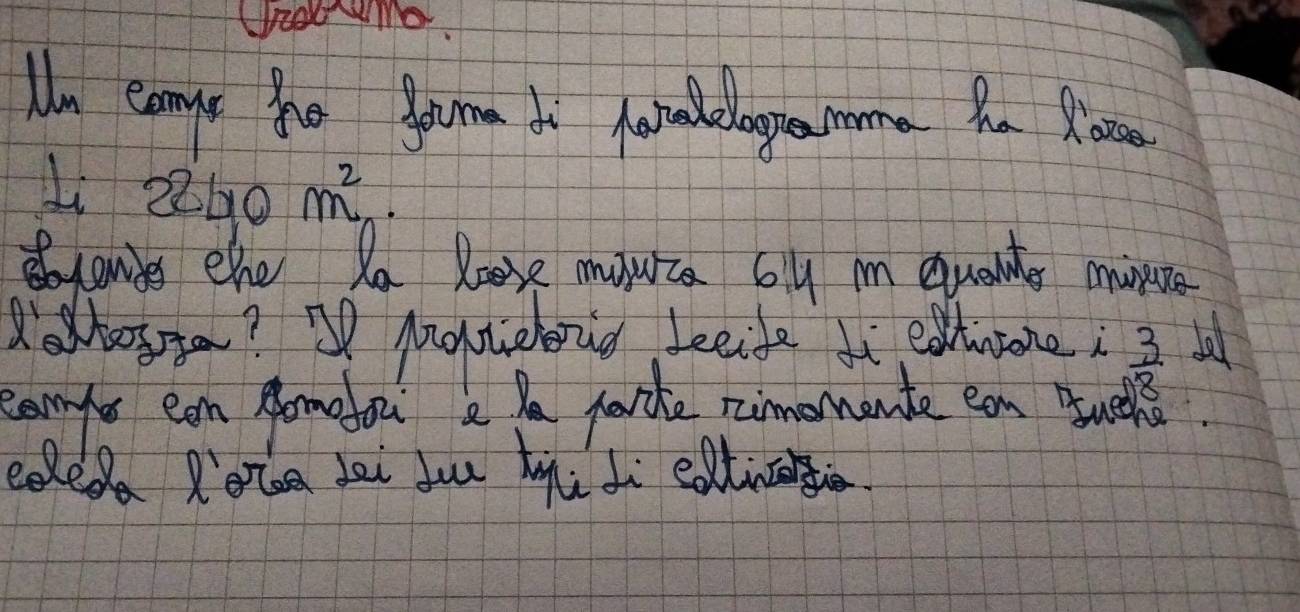 Problema.
Un campo ha forma di paralelogramma ha l'area
di 2240 m².
Sapendo che la base misura 64 m quanto misura
l'altezza? Il proprietario decide di coltivare i 3/8 del
campo con pomodori e la parte rimanente con zucche.
calcola l'area dei due tipi di coltivazio.